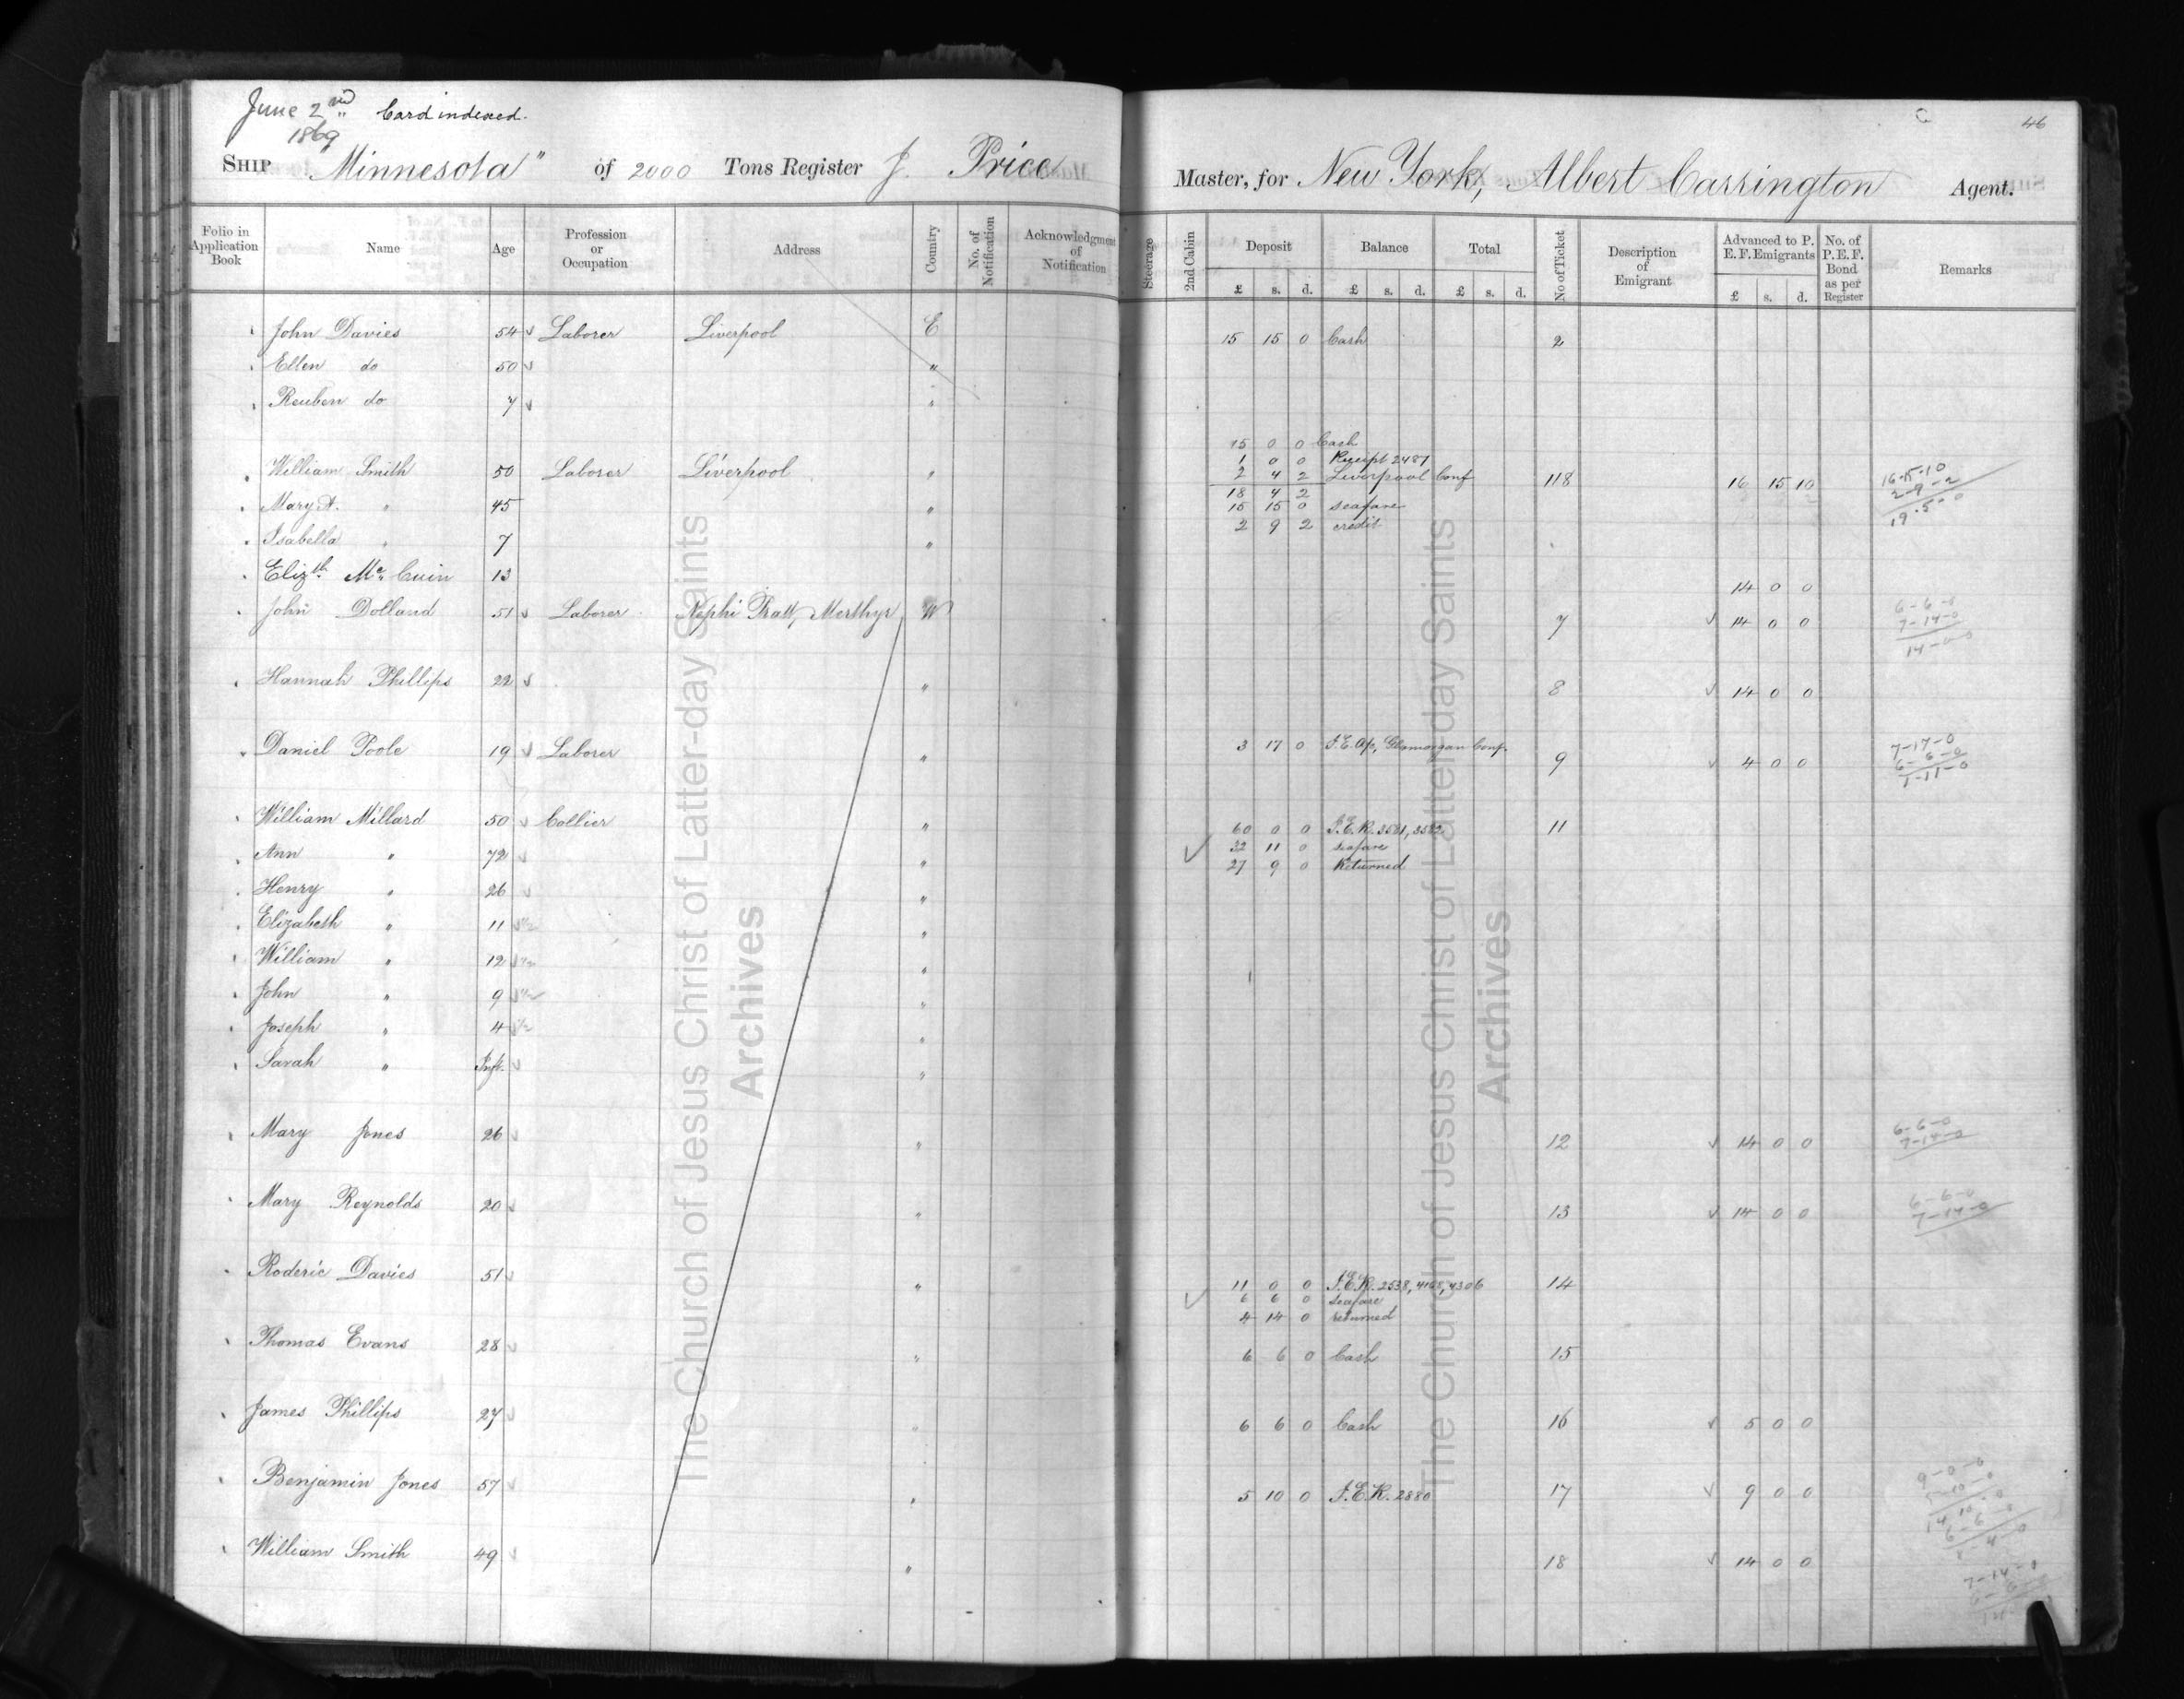 June 2nd Card indexed.
1869
46
SHIP Minnesota" of 2000 Tons Register J. Price Master, for New York, Albert Carrington Agent.
Folio in Application Book Name Age Profession or Occupation Address Country No. of Notification Acknowledgment of Notification Steerage 2nd Cabin Deposit £ s. d. Balance £ s. d. Total £ s. d. No of Ticket Description of Emigrant Advanced to P. E. F. Emigrants £ s. d. No. of P.E.F. Bond as per Register Remarks
John Davies 54 Laborer Liverpool E 15 15 0 Cash 2
Ellen do 50 "
Reuben do 7 "
15 0 0 Cash
1 0 0 Receipt 2487
William Smith 50 Laborer Liverpool " 2 4 2 Liverpool Conf 118 16 15 10 16-15-10
18 4 2 2-9-2
Mary A. " 45 " 15 15 0 seafare 19-5-0
2 9 2 credit
Isabella " 7 "
Elizth Mc Cuin 13 14 0 0
John Dolland 51 Laborer Nephi Pratt, Merthyr W 7 14 0 0 6-6-0
7-14-0
14-0-0
Hannah Phillips 22 " 8 14 0 0
Daniel Poole 19 Laborer " 3 17 0 I.E. Ap, Glamorgan Conf. 9 4 0 0 7-17-0
6-6-0
1-11-0
William Millard 50 Collier " 60 0 0 I.E.R. 3581, 3582 11
Ann " 72 " 32 11 0 seafare
27 9 0 Returned
Henry " 26 "
Elizabeth " 11 "
William " 12 "
John " 9 "
Joseph " 4 "
Sarah " Inft. "
Mary Jones 26 " 12 14 0 0 6-6-0
7-14-0
Mary Reynolds 20 " 13 14 0 0 6-6-0
7-14-0
Roderic Davies 51 " 11 0 0 I.E.R. 2538, 4306 14
6 6 0 seafare
4 14 0 returned
Thomas Evans 28 " 6 6 0 Cash 15
James Phillips 27 " 6 6 0 Cash 16 5 0 0
Benjamin Jones 57 " 5 10 0 I.E.R. 2880 17 9 0 0 9-0-0
5-10-0
14 10 0
William Smith 49 " 18 14 0 0
7-14-0
The Church of Jesus Christ of Latter-day Saints
Archives
The Church of Jesus Christ of Latter-day Saints
Archives